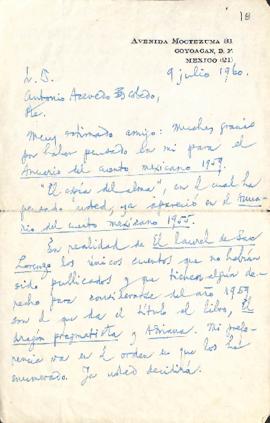 18
AVENIDA MOCTEZUMA 81
COYOACAN, D. F.
MEXICO (21)
9 julio 1960.
Antonio Acevedo Escobedo,
Pte.
Muy estimado amigo: Muchas gracias
por haber pensado en mí para el
Anuario del cuento mexicano 1959.
"El espía del alma", en el cual ha
pensado usted, ya apareció en el Anua-
rio del cuento mexicano 1955.
En realidad de El laurel de San
Lorenzo los únicos cuentos que no habían
sido publicados y que tienen algún de-
recho para considerarse del año 1959
son el que da el título al libro, El
dragón pragmatista y Adriana. Mi prefe-
rencia va en el orden en que los he
enumerado. Ya usted decidirá.